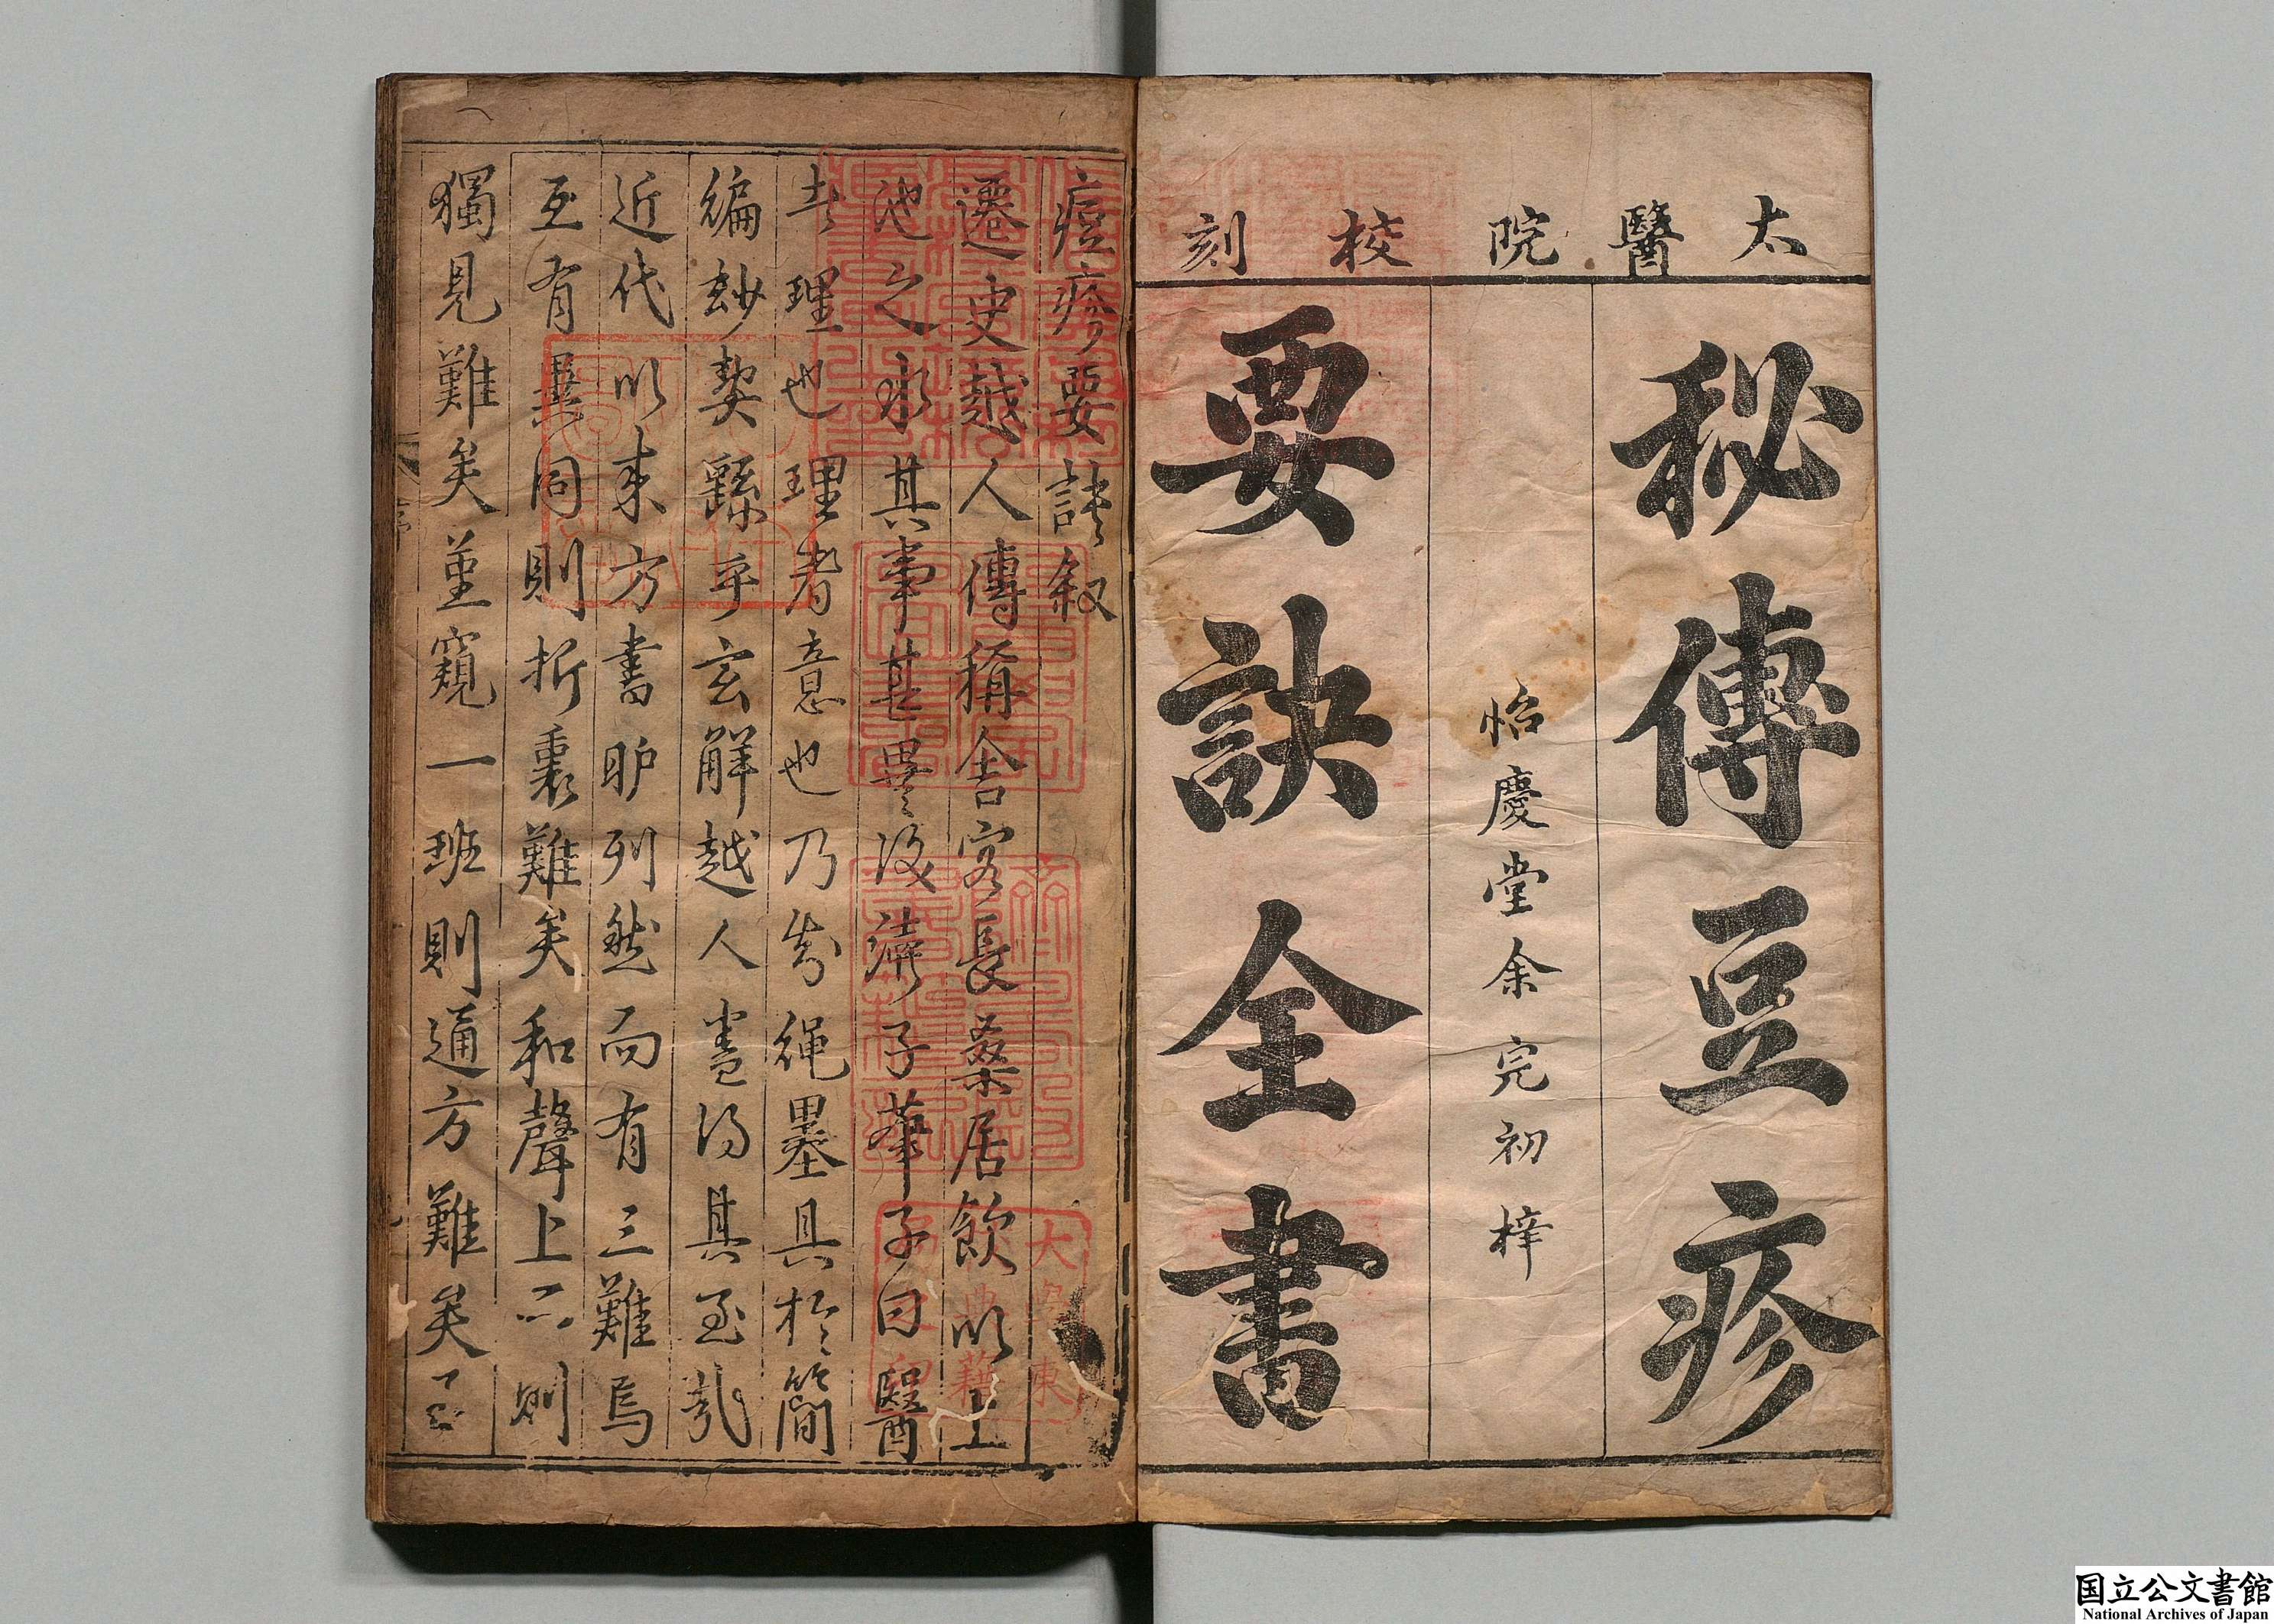 太醫院校刻
秘傳豆疹
怡慶堂余完初梓
要訣全書
痘疹要訣叙
遷史越人傳稱舍客長桑居飲以上
池之水其事甚異後漢子華子曰醫
者理也理者意也乃若繩墨具於簡
編玅契繇乎玄解越人盡得其至哉
近代以來方書昈列然而有三難焉
互有異同則折衷難矣和聲上下則
獨見難矣堇窺一班則通方難矣
国立公文書館
National Archives of Japan